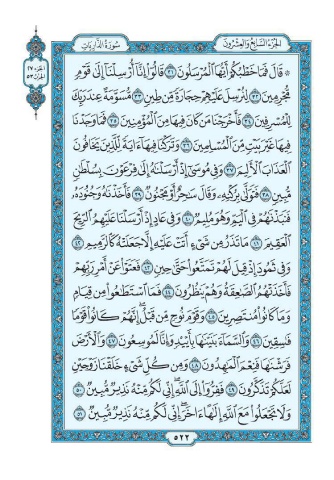 الجزء السابع والعشرون
سورة الذاريات
الجزء ٢٧
الحزب ٥٣
۞ قَالَ فَمَا خَطْبُكُمْ أَيُّهَا ٱلْمُرْسَلُونَ ٣١ قَالُوٓا۟ إِنَّآ أُرْسِلْنَآ إِلَىٰ قَوْمٍ
مُّجْرِمِينَ ٣٢ لِنُرْسِلَ عَلَيْهِمْ حِجَارَةً مِّن طِينٍ ٣٣ مُّسَوَّمَةً عِندَ رَبِّكَ
لِلْمُسْرِفِينَ ٣٤ فَأَخْرَجْنَا مَن كَانَ فِيهَا مِنَ ٱلْمُؤْمِنِينَ ٣٥ فَمَا وَجَدْنَا
فِيهَا غَيْرَ بَيْتٍ مِّنَ ٱلْمُسْلِمِينَ ٣٦ وَتَرَكْنَا فِيهَآ ءَايَةً لِّلَّذِينَ يَخَافُونَ
ٱلْعَذَابَ ٱلْأَلِيمَ ٣٧ وَفِى مُوسَىٰٓ إِذْ أَرْسَلْنَٰهُ إِلَىٰ فِرْعَوْنَ بِسُلْطَٰنٍ
مُّبِينٍ ٣٨ فَتَوَلَّىٰ بِرُكْنِهِۦ وَقَالَ سَٰحِرٌ أَوْ مَجْنُونٌ ٣٩ فَأَخَذْنَٰهُ وَجُنُودَهُۥ
فَنَبَذْنَٰهُمْ فِى ٱلْيَمِّ وَهُوَ مُلِيمٌ ٤٠ وَفِى عَادٍ إِذْ أَرْسَلْنَا عَلَيْهِمُ ٱلرِّيحَ
ٱلْعَقِيمَ ٤١ مَا تَذَرُ مِن شَىْءٍ أَتَتْ عَلَيْهِ إِلَّا جَعَلَتْهُ كَٱلرَّمِيمِ ٤٢
وَفِى ثَمُودَ إِذْ قِيلَ لَهُمْ تَمَتَّعُوا۟ حَتَّىٰ حِينٍ ٤٣ فَعَتَوْا۟ عَنْ أَمْرِ رَبِّهِمْ
فَأَخَذَتْهُمُ ٱلصَّٰعِقَةُ وَهُمْ يَنظُرُونَ ٤٤ فَمَا ٱسْتَطَٰعُوا۟ مِن قِيَامٍ
وَمَا كَانُوا۟ مُنتَصِرِينَ ٤٥ وَقَوْمَ نُوحٍ مِّن قَبْلُ إِنَّهُمْ كَانُوا۟ قَوْمًا
فَٰسِقِينَ ٤٦ وَٱلسَّمَآءَ بَنَيْنَٰهَا بِأَيْي۟دٍ وَإِنَّا لَمُوسِعُونَ ٤٧ وَٱلْأَرْضَ
فَرَشْنَٰهَا فَنِعْمَ ٱلْمَٰهِدُونَ ٤٨ وَمِن كُلِّ شَىْءٍ خَلَقْنَا زَوْجَيْنِ
لَعَلَّكُمْ تَذَكَّرُونَ ٤٩ فَفِرُّوٓا۟ إِلَى ٱللَّهِ إِنِّى لَكُم مِّنْهُ نَذِيرٌ مُّبِينٌ ٥٠
وَلَا تَجْعَلُوا۟ مَعَ ٱللَّهِ إِلَٰهًا ءَاخَرَ إِنِّى لَكُم مِّنْهُ نَذِيرٌ مُّبِينٌ ٥١
٥٢٢